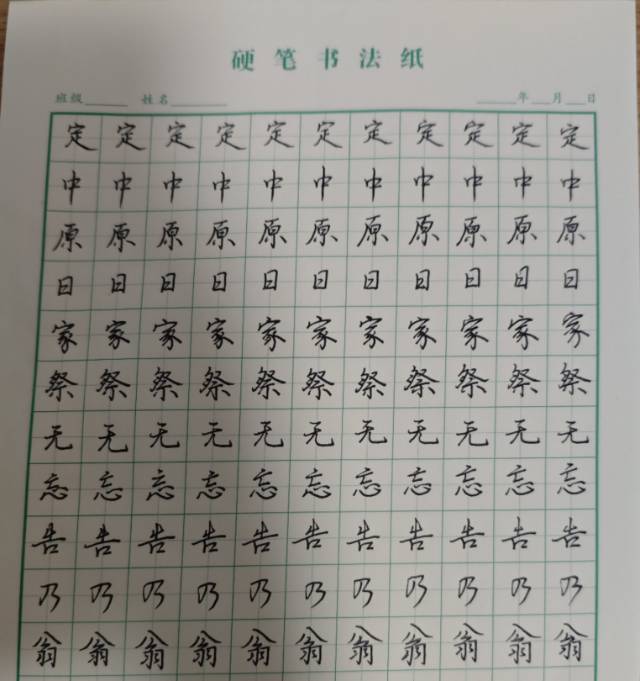 硬笔书法纸
班级 姓名 年 月 日
定定定定定定定定定定定
中中中中中中中中中中中
原原原原原原原原原原原
日日日日日日日日日日日
家家家家家家家家家家家
祭祭祭祭祭祭祭祭祭祭祭
无无无无无无无无无无无
忘忘忘忘忘忘忘忘忘忘忘
告告告告告告告告告告告
乃乃乃乃乃乃乃乃乃乃乃
翁翁翁翁翁翁翁翁翁翁翁